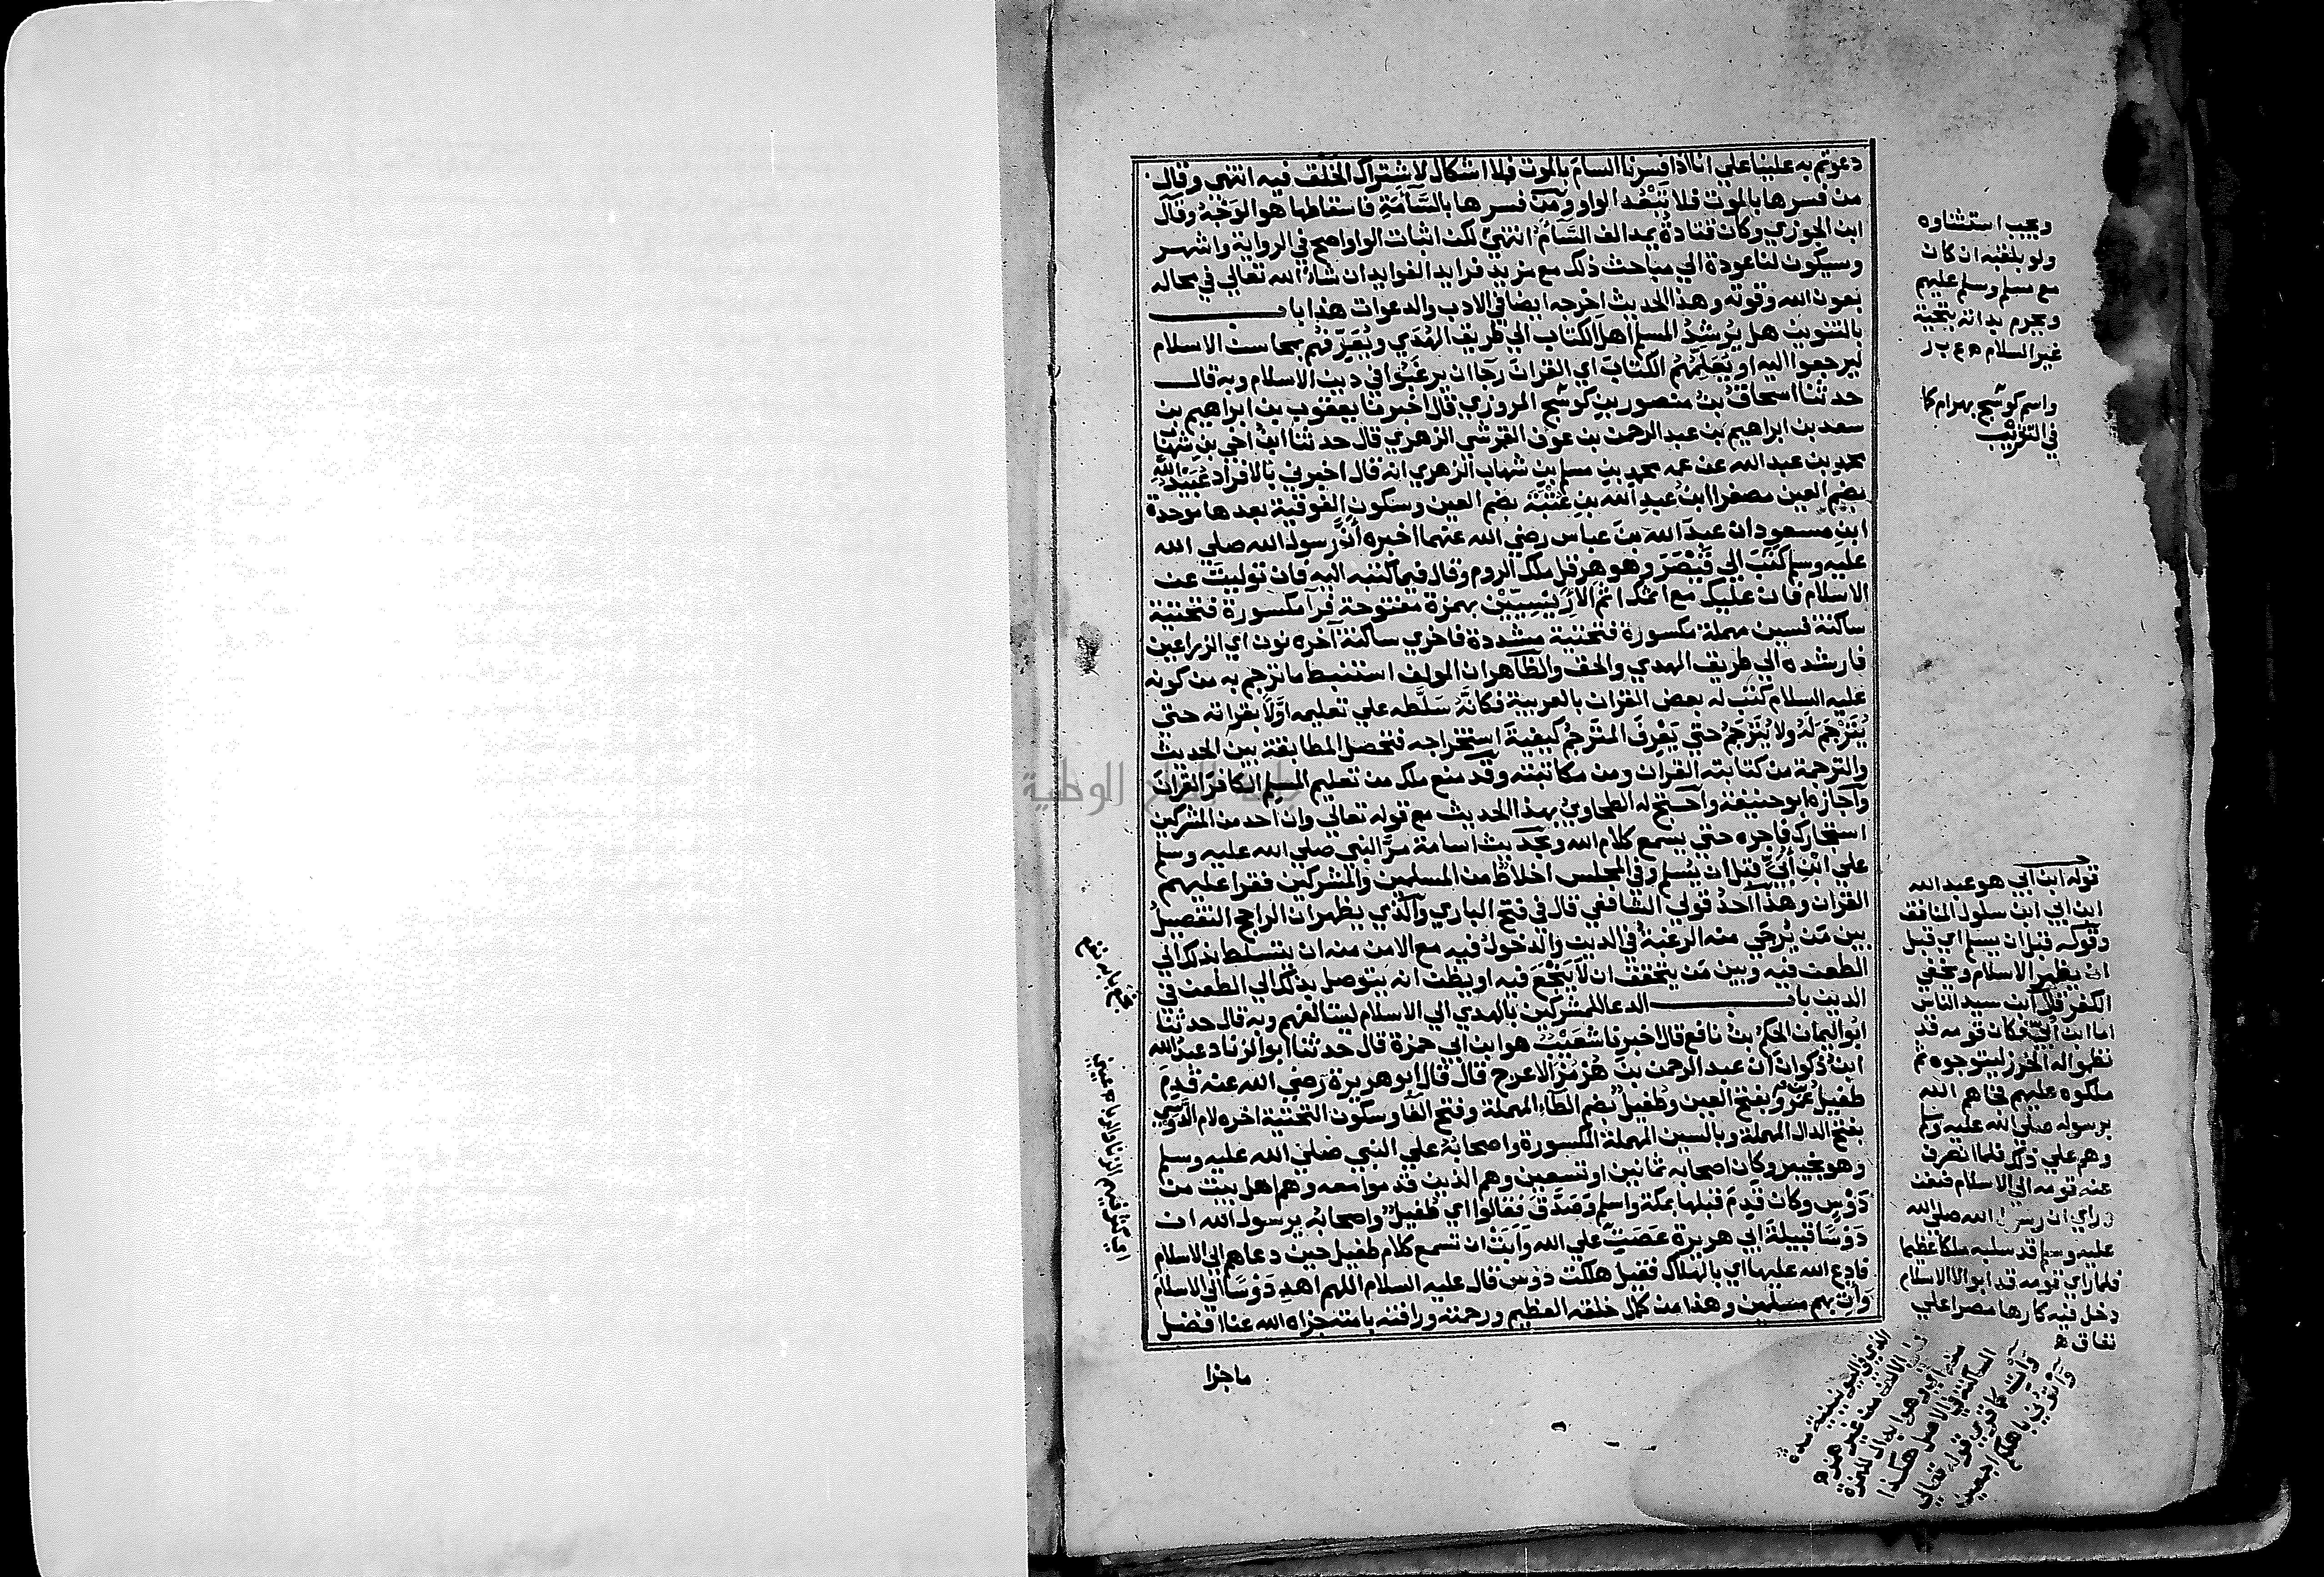 دعوتم به علينا علي انا اذا فسرنا السام بالموت فلا اشكال لاشتراك الخلق فيه انتهي وقال
من فسرها بالموت فلا تبعد الواو ومن فسرها بالسَّآمَةِ فاسقاطها هو الوَجْهُ وقال
ابن الجوزي وكان قتادة يمد الف السَّآمَ انتهي لكن اثبات الواو اصح في الرواية واشهر
وسيكون لنا عودة الي مباحث ذلك مع مزيد فرايد الفوايد ان شاء الله تعالي في محاله
بعون الله وقوته وهذا الحديث اخرجه ايضا في الادب والدعوات هذا باب
بالتنوين هل يُرشدُ المسلم اهل الكتاب الي طريق الهُدَي ويُعَرِّفهم بمحاسن الاسلام
ليرجعوا اليه او يُعَلِّمُهُم الكتابَ اي القران رجآ ان يرغبُوا في دين الاسلام وبه قال
حدثنا اسحاق بن منصور بن كوسج المروزي قال اخبرنا يعقوب بن ابراهيم بن
سعد بن ابراهيم بن عبد الرحمن بن عوف القرشي الزهري قال حدثنا ابن اخي بن شهاب
محمد بن عبد الله عن عمه محمد بن مسلم بن شهاب الزهري انه قال اخبرني بالافراد عُبيدُ الله
بضم العين مصغرا ابن عبد الله بن عُتْبَة بضم العين وسكون الفوقية بعدها موحدة
ابن مسعود ان عبدَ الله بنَ عباس رضي الله عنهما اخبره أنَّ رسول الله صلي الله
عليه وسلم كَتَبَ الي قَيْصَرَ وهو هرقل ملك الروم وقال فيما كتبه اليه فان توليتَ عن
الاسلام فان عليك مع اثمك اثم الأَرِيْسِيِّيْن بهمزة مفتوحة فرآ مكسورة فتحتية
ساكنة فسين مهملة مكسورة فتحتية مشددة فاخري ساكنة آخره نون اي الزراعين
فارشده الي طريق الهدي والحق والظاهر ان المولف استنبط ما ترجم به من كونه
عليه السلام كتب له بعض القران بالعربية فكانَّهُ سَلَّطه علي تعليمه اوَّلا بقراته حتي
يُتَرْجَمَ لَهُ ولا يُتَرْجَمُ حتي يَعْرِفَ المترجمُ كيفيةَ استخراجه فتحصل المطابقة بين الحديث
والترجمة من كتابته القران ومن مكاتبته وقد منع ملك من تعليم المسلم الكافرَ القرانَ
واجازه ابو حنيفة واحتج له الطحاويُّ بهذا الحديث مع قوله تعالي وان احد من المشركين
استجارك فاجره حتي يسمع كلام الله وبحديث اسامة مرَّ النبي صلي الله عليه وسلم
علي ابْن أُبيٍّ قبل ان يُسْلِم وفي المجلس اخلاط من المسلمين والمشركين فقرا عليهم
القران وهذا احدُ قولي الشافعي قال في فتح الباري والذي يظهر ان الراجح التفصيل
بين مَن يُرجَي منه الرغبةُ في الدين والدخولُ فيه مع الامن منه ان يتسلط بذلك الي
الطعن فيه وبين مَن يتحقق ان لا يَنْجَعَ فيه او يظن انه يتوصل بذلك الي الطعن في
الدين باب الدعا للمشركين بالهدي الي الاسلام ليتالفهم وبه قال حدثنا
ابو اليمان الحكم بن نافع قال اخبرنا شعَيْبٌ هو ابن ابي حمزة قال حدثنا ابو الزناد عبدُ الله
ابنُ ذكوان أن عبد الرحمن بن هُرْمُزَ الاعرج قال قال ابو هريرة رضي الله عنه قَدِمَ
طفيلُ بْنُ عَمْروٍ بفتح العين وطُفيلٌ بضم الطآء المهملة وفتح الفا وسكون التحتية اخره لام الدَّوسي
بفتح الدال المهملة وبالسين المهملة المكسورة واصحابهُ علي النبي صلي الله عليه وسلم
وهو بخيبر وكان اصحابه ثمانين او تسعين وهم الذين قدموا معه وهم اهل بيت من
دَوْسٍ وكان قَدِمَ قبلها بمكة واسلم وَصَدَّقَ فقالوا اي طُفيلٌ واصحابُه يرسول الله ان
دَوْسًا قبيلةَ ابي هريرة عَصَتْ علي الله وَأَبَتْ ان تسمع كلام طفيل حين دعاهم الي الاسلام
فادع الله عليها اي بالهلاك فقيل هلكت دَوْس قال عليه السلام اللهم اهدِ دَوْسًا الي الاسلام
وَأتِ بهم مسلمين وهذا من كمل خلقه العظيم ورحمته ورافته بامته جزاه الله عنا افضل
ماجزا
ويجب استثناوه
ولو بلقبه ان كان
مع مسلم وسلم عليهم
ويحرم بداته بتحية
غير السلام
واسم كوسج بهرام كما
في التقريب
قوله ابن ابي هو عبد الله
ابن ابي ابن سلول المنافق
وقوله قبل ان يسلم اي قبل
ان يظهر الاسلام ويخفي
الكفر قال ابن سيد الناس
اما ابن أُبيّ فكان قومه قد
نظموا له الخرز ليتوجوه ثم
ملكوه عليهم فجاهم الله
برسوله صلي الله عليه وسلم
وهم علي ذلك فلما انصرف
عنه قومه الي الاسلام ضغن
وراي ان رسول الله صلي الله
عليه وسلم قد سلبه ملكا عظيما
فلما راي قومه قد ابوا الا الاسلام
دخل فيه كارها مصرا علي
نفاق
نجع بابه نفع
جامعة الوطنية